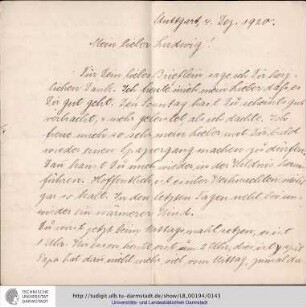 Stuttgart, 4. Dez. 1920.
Mein lieber Ludwig!
Für Dein liebes Brieflein sage ich Dir herz-
lichen Dank. Ich freute mich mein Lieber daß es
Dir gut geht. Den Sonntag hast Du scheints gut
verbracht, mehr gelernt als ich dachte. Ich
freue mich so sehr mein Lieber mit Dir bald
wieder einen Spaziergang machen zu dürfen.
Dann kannst Du mich wieder in der Wildnis herum-
führen. Hoffentlich ist es an Weihnachten nicht
gar so kalt. In den letzten Tagen weht bei uns
wieder ein warmerer Wind.
Du wirst jetzt beim Mittagsmahl sitzen, es ist
1 Uhr. Wir essen heute erst um 2 Uhr,
Papa hat dann nicht mehr viel vom Mittag,
TECHNISCHE
UNIVERSITÄT
DARMSTADT
http://tudigit.ulb.tu-darmstadt.de/show/LB_00194/0143
Universitäts- und Landesbibliothek Darmstadt